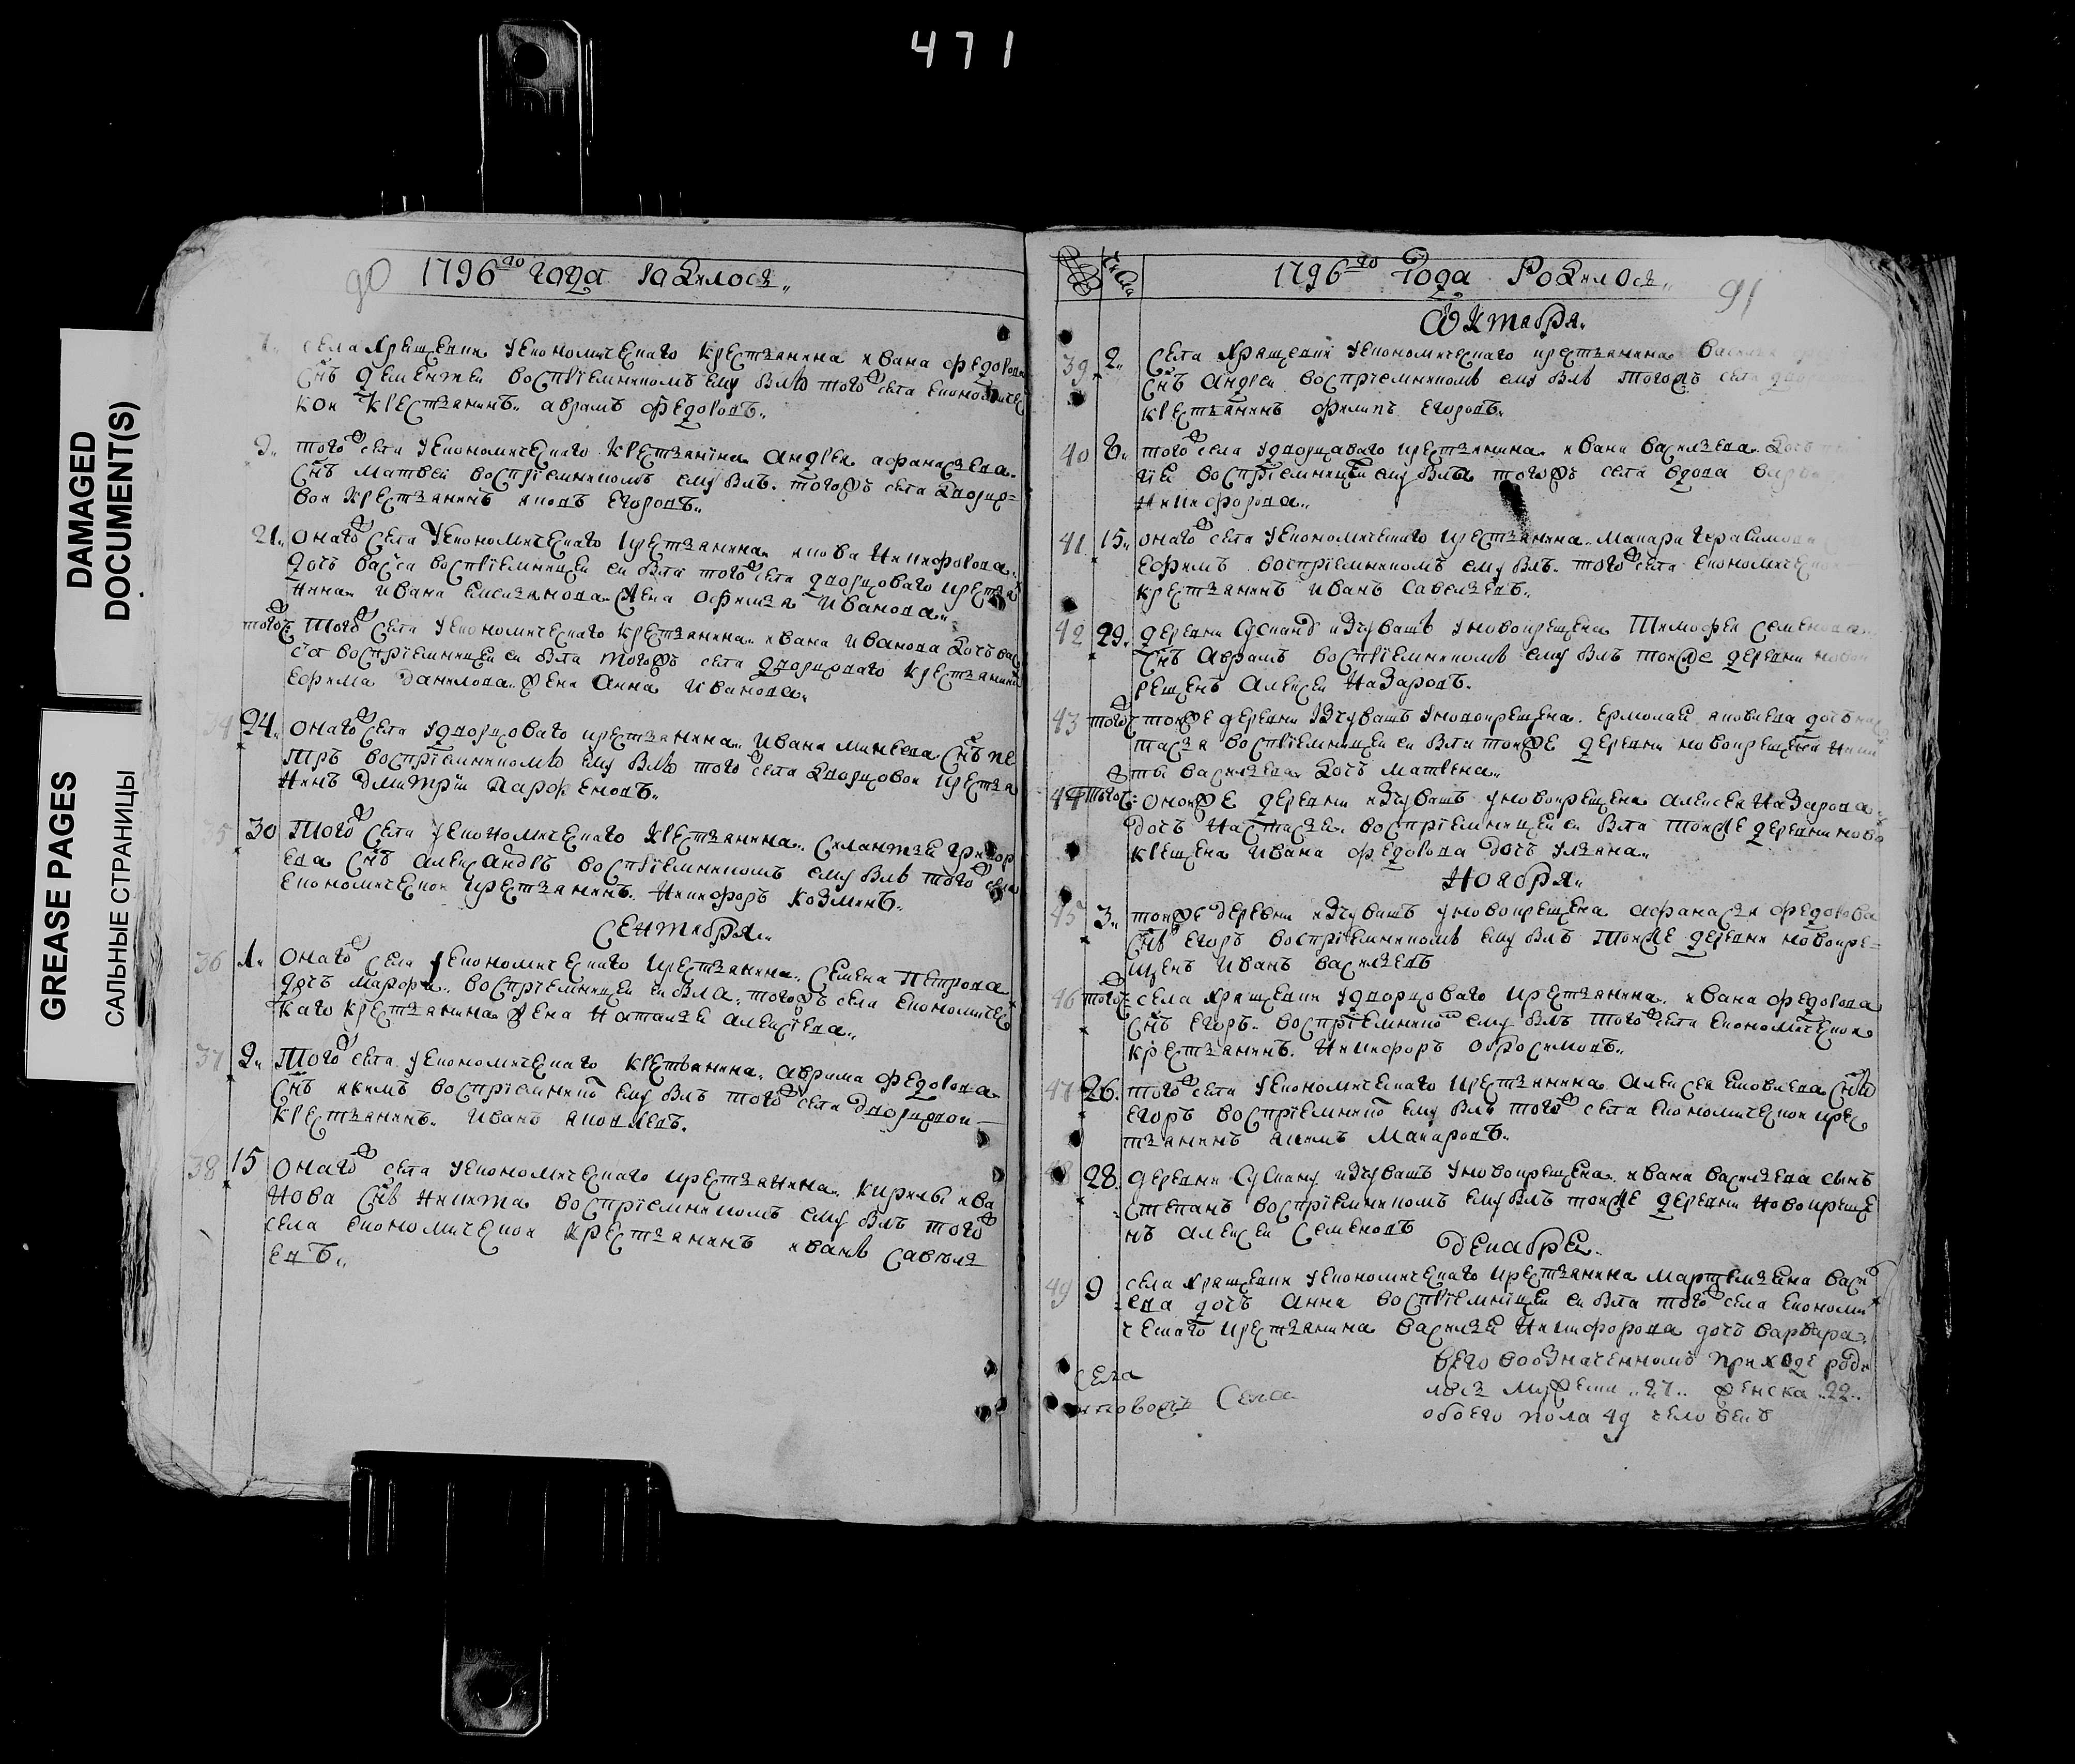 471
DAMAGED
DOCUMENT(S)
GREASE PAGES
САЛЬНЫЕ СТРАНИЦЫ
90 1796го года родилось
села Хрящевки уекономическаго крестьянина ивана федорова
снъ дементеи воспріемникомъ ему былъ того села економичес
кои крестьянинъ аврамъ федоровъ
9 того села уекономическаго крестьянина андрея афанасьева
снъ матвеи воспріемникомъ ему былъ тогожъ села дворцо=
вои крестьянинъ яковъ егоровъ
21 онаго села уекономическаго крестьянина якова никифорова
дочь васса воспріемницеи еи была того села дворцоваго крестья
нина ивана жена офимья иванова
того того села уекономическаго крестьянина ивана иванова дочь вас
са воспріемницеи еи была тогожъ села дворцоваго крестьянина
ефима данилова жена анна иванова
34 24 онаго села удворцоваго крестьянина ивана минеева снъ пе
тръ воспріемникомъ ему былъ того села дворцовои крестья
нинъ дмитріи парфеновъ
35 30 того села уекономическаго крестьянина силантья григор
ева снъ александръ воспріемникомъ ему былъ того села
економическои крестьянинъ никифоръ козминъ
сентября
36 1 онаго села уекономическаго крестьянина семена петрова
дочь марфа воспріемницеи еи была тогожъ села економичес
каго крестьянина жена наталья алексіева
37 2 того села уекономическаго крестьянина аврама федорова
снъ якимъ воспріемнико ему былъ того села дворцовои
крестьянинъ иванъ яковлевъ
38 15 онаго села уекономическаго крестьянина кирилы ива
нова снъ никита воспріемникомъ ему былъ того
села економическои крестьянинъ иванъ савель
евъ
числа
1796го года родилось 91
октября
39 2 села Хрящевки уекономическаго крестьянина
снъ андреи воспріемникомъ ему былъ тогожъ села
крестьянинъ филипъ егоровъ
40 8 того села удворцоваго крестьянина ивана васильева дочь
воспріемницеи ему была тогожъ села вдова
никифорова
41 15 онаго села уекономическаго крестьянина макара герасимова
ефимъ воспріемникомъ ему былъ того села економическои
крестьянинъ иванъ савельевъ
42 29 деревни Сускана изчувашъ уновокрещена тимофея семенова
снъ аврамъ воспріемникомъ ему былъ тоиже деревни новок
рещенъ алексеи назаровъ
43 того тоиже деревни изчувашъ уновокрещена ермолая яковлева дочь нас
тасья воспріемницеи еи была тоиже деревни новокрещена ники
ты васильева дочь матвена
44 того онои же деревни изчувашъ уновокрещена алексея назарова
дочь настасья воспріемницеи еи была тоиже деревни ново
крещена ивана федорова дочь ульяна
ноября
45 3 тоиже деревни изчувашъ уновокрещена афанасья федорова
снъ егоръ воспріемникомъ ему былъ тоиже деревни новокре=
щенъ иванъ васильевъ
46 того села Хрящевки удворцоваго крестьянина ивана федорова
снъ егоръ воспріемнико ему былъ того села економическои
крестьянинъ никифоръ обросимовъ
47 26 того села уекономическаго крестьянина алексея яковлева снъ
егоръ воспріемнико ему былъ того села економическои крес
тьянинъ якимъ макаровъ
48 28 деревни Сускану изчувашъ уновокрещена ивана васильева сынъ
степанъ воспріемникомъ ему былъ тоиже деревни новокреще
нъ алексеи семеновъ
декабря
49 9 села Хрящевки уекономическаго крестьянина мартемьяна васи
ева дочь анна воспріемницеи еи была того села економи
ческаго крестьянина василья никифорова дочь варвара
всего вообначенномъ приходе роди
лось мужеска 27 женска 22
обоего пола 49 человекъ
села
села